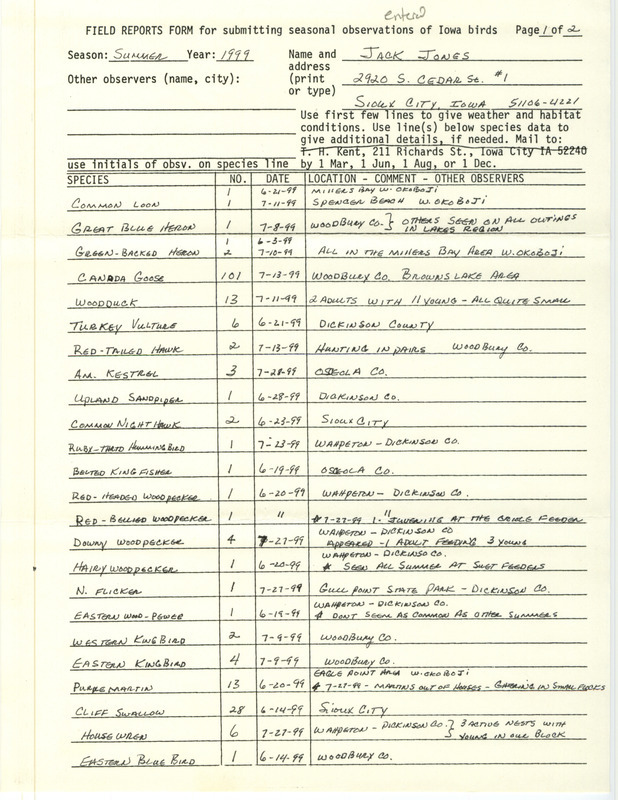 entered
FIELD REPORTS FORM for submitting seasonal observations of Iowa birds Page 1 of 2
Season: SUMMER Year: 1999 Name and JACK JONES
address
Other observers (name, city): (print 2920 S. CEDAR St. #1
or type)
SIOUX CITY, IOWA 51106-4221
Use first few lines to give weather and habitat
conditions. Use line(s) below species data to
give additional details, if needed. Mail to:
T. H. Kent, 211 Richards St., Iowa City IA 52240
use initials of obsv. on species line by 1 Mar, 1 Jun, 1 Aug, or 1 Dec.
SPECIES NO. DATE LOCATION - COMMENT - OTHER OBSERVERS
1 6-21-99 MILLERS BAY W. OKOBOJI
COMMON LOON 1 7-11-99 SPENCER BEACH W. OKOBOJI
GREAT BLUE HERON 1 7-8-99 WOODBURY CO. } OTHERS SEEN ON ALL OUTINGS
IN LAKES REGION
1 6-3-99
GREEN-BACKED HERON 2 7-10-99 ALL IN THE MILLERS BAY AREA W. OKOBOJI
CANADA GOOSE 101 7-13-99 WOODBURY CO. BROWNS LAKE AREA
WOODDUCK 13 7-11-99 2 ADULTS WITH 11 YOUNG - ALL QUITE SMALL
TURKEY VULTURE 6 6-21-99 DICKINSON COUNTY
RED-TAILED HAWK 2 7-13-99 HUNTING IN PAIRS WOODBURY CO.
AM. KESTREL 3 7-28-99 OSCEOLA CO.
UPLAND SANDPIPER 1 6-28-99 DICKINSON CO.
COMMON NIGHT HAWK 2 6-23-99 SIOUX CITY
RUBY-THRTD HUMMINGBIRD 1 7-23-99 WAHPETON - DICKINSON CO.
BELTED KINGFISHER 1 6-19-99 OSCEOLA CO.
RED-HEADED WOODPECKER 1 6-20-99 WAHPETON - DICKINSON CO.
RED-BELLIED WOODPECKER 1 " "
# 7-27-99 1 - JUVENILE AT THE FEEDER
WAHPETON - DICKINSON CO
DOWNY WOODPECKER 4 7-27-99 APPEARED - 1 ADULT FEEDING 3 YOUNG
WAHPETON - DICKINSO CO.
HAIRY WOODPECKER 1 6-20-99 # SEEN ALL SUMMER AT SUET FEEDERS
N. FLICKER 1 7-27-99 GULL POINT STATE PARK - DICKINSON CO.
WAHPETON - DICKINSON CO.
EASTERN WOOD-PEWEE 1 6-19-99 # DONT SEEM AS COMMON AS OTHER SUMMERS
WESTERN KINGBIRD 2 7-9-99 WOODBURY CO.
EASTERN KINGBIRD 4 7-9-99 WOODBURY CO.
EAGLE POINT AREA W. OKOBOJI
PURPLE MARTIN 13 6-20-99 # 7-27-99 - MARTINS OUT OF HOUSES - GATHERING IN SMALL FLOCKS
CLIFF SWALLOW 28 6-14-99 SIOUX CITY
HOUSE WREN 6 7-27-99 WAHPETON - DICKINSON CO. } 3 ACTIVE NESTS WITH
YOUNG IN OUR BLOCK
EASTERN BLUE BIRD 1 6-14-99 WOODBURY CO.